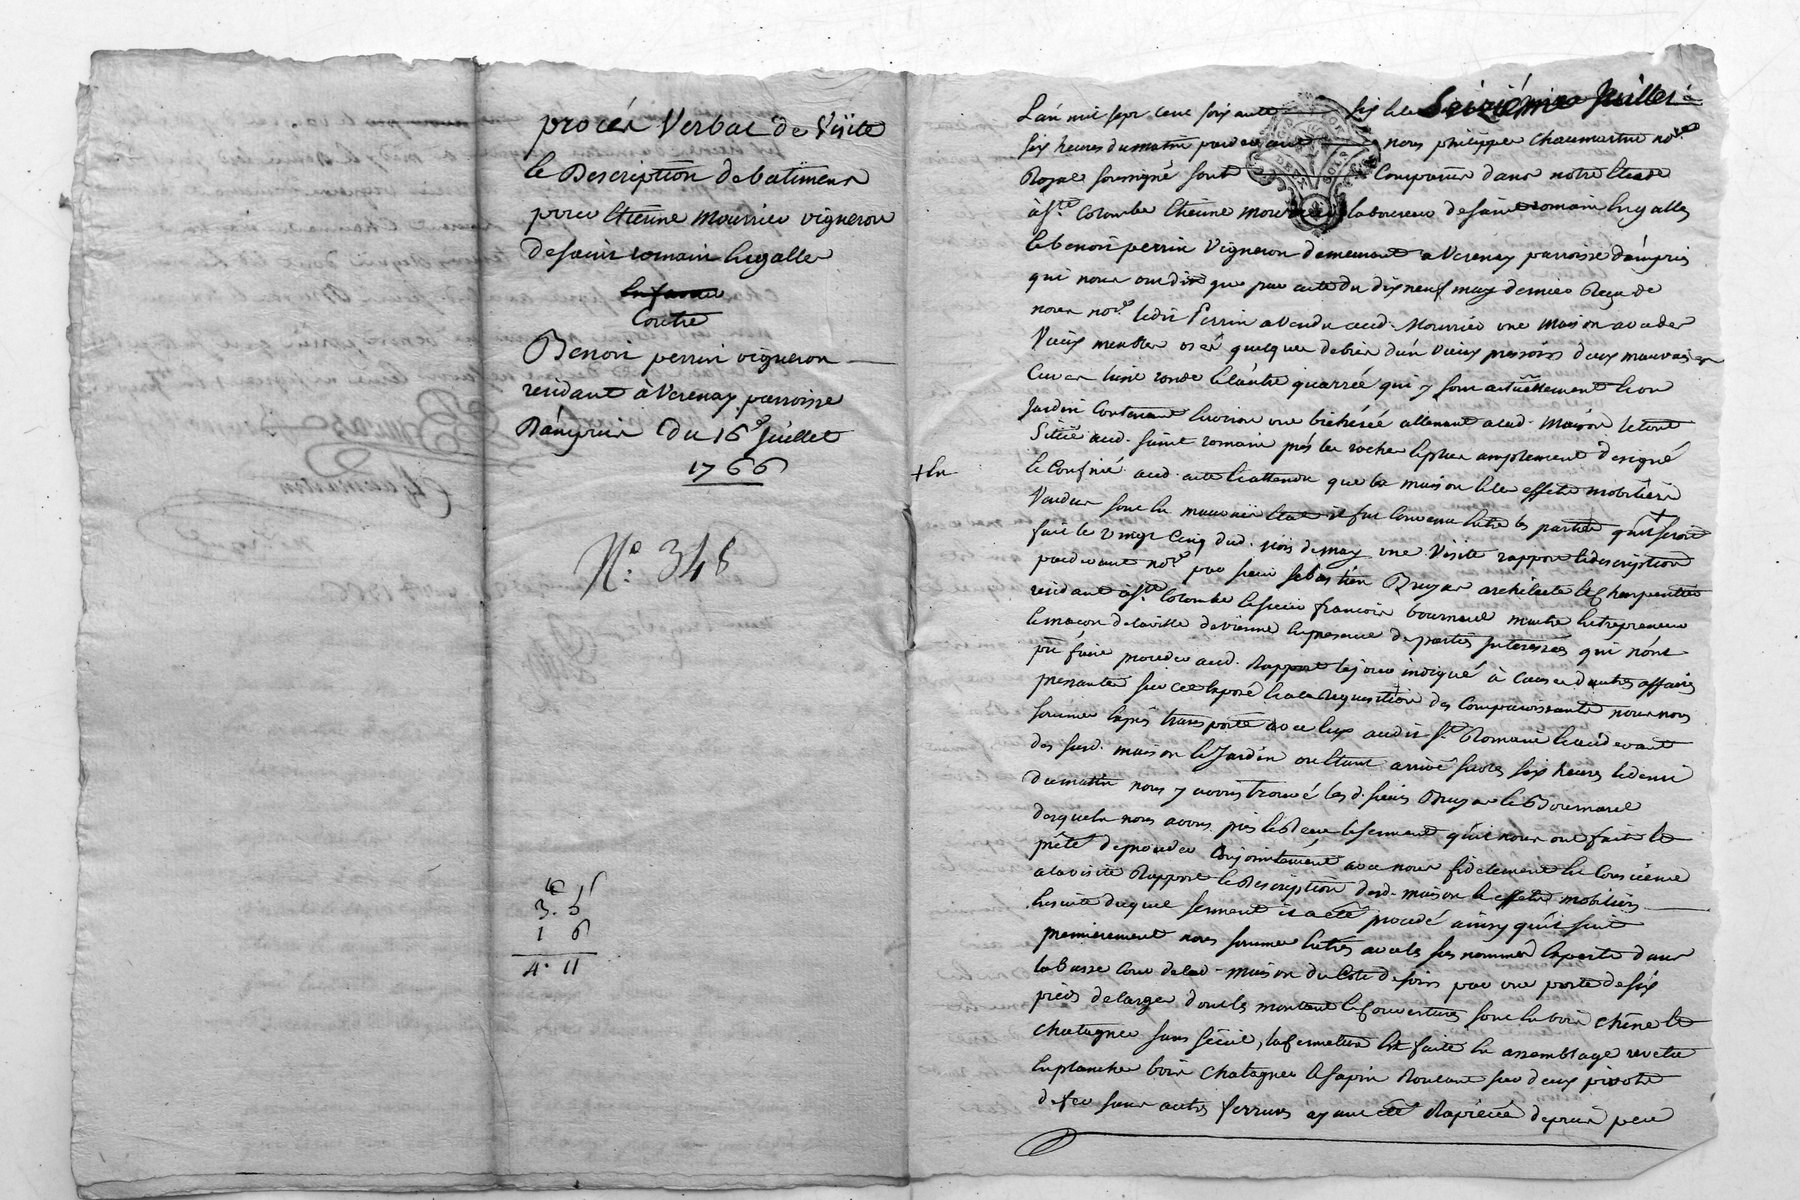 procés Verbal de Visite
et Description de batimens
pour etienne mourrier vigneron
de saint romain en galle
Contre
Benoit perrin vigneron
residant à Verenay parroisse
Dámpuis Du 16e Juillet
1766
No. 348
3. 5
1 6
4. 11
+ en
L'an mil sept cent soixante six et le Seiziéme Juillet à
six heures du matin pardevant nous philippe Chaumartin nore
Royal soussigné sont Comparus dans notre etude
à Ste. Colombe etienne mourrier laboureur de saint romain en galles
et benoit perrin Vigneron demeurant a Verenay parroisse dámpuis
qui nous ont dit que par acte du dix neuf may dernier Reçu de
nous nore. ledit Perrin a vendu aud. Mourrier une maison avec des
Vieux meubles et quelques debris d'un vieux pressoir deux mauvaises
Cuves l'une ronde et l'autre quarrée qui y sont actuellement et un
Jardin Contenant environ une bicherée attenant a lad. Maison le tout
Situé aud. saint romain prés les roches et plus amplement designé
et Confiné aud. acte et attendu que la maison et les effets mobiliers
Vendus sont en mauvais etat il fut Convenu entre les parties qu'il seroit
fait le vingt Cinq dud. mois de may une Visite rapport et description
pardevant nore par sieur Sebastien Bruyas architecte et Charpentier
residant à Ste. Colombe et sieur francois bournard maitre entrepreneur
et macon de la ville de vienne en presence des parties Interessées qui n'ont
pû faire proceder aud. Rapport le jour indiqué à Cause d'autres affaires
pressantes sur cet exposé et a la requisition des Comparoissants nous nous
sommes exprés transporté avec eux audit St. Romain et au devant
des susd. maison et Jardin ou etant arrivé sur les six heures et demi
du matin nous y avons trouvé les d. sieurs Bruyas et Bournard
desquels nous avons pris et Reçu le serment qu'ils nous ont fait et
prété de proceder Conjointement avec nous fidelement en Conscience
a la visite Rapport et Description desd. maison et effets mobiliers
ensuite duquel serment il a eté procedé ainsy qu'il suit
premierement nous sommes entrés avec les sus nommés experts dans
la basse Cour de lad. maison du Coté de soir par une porte de six
pieds de large dont les montant et Couverture sont en bois chêne et
chatagner sans seuil, la fermeture est faite en assemblage revetue
en planches bois chatagner et sapin Roulant sur deux pivots
de fer sans autres ferrures ayant eté Rapiécée depuis peu